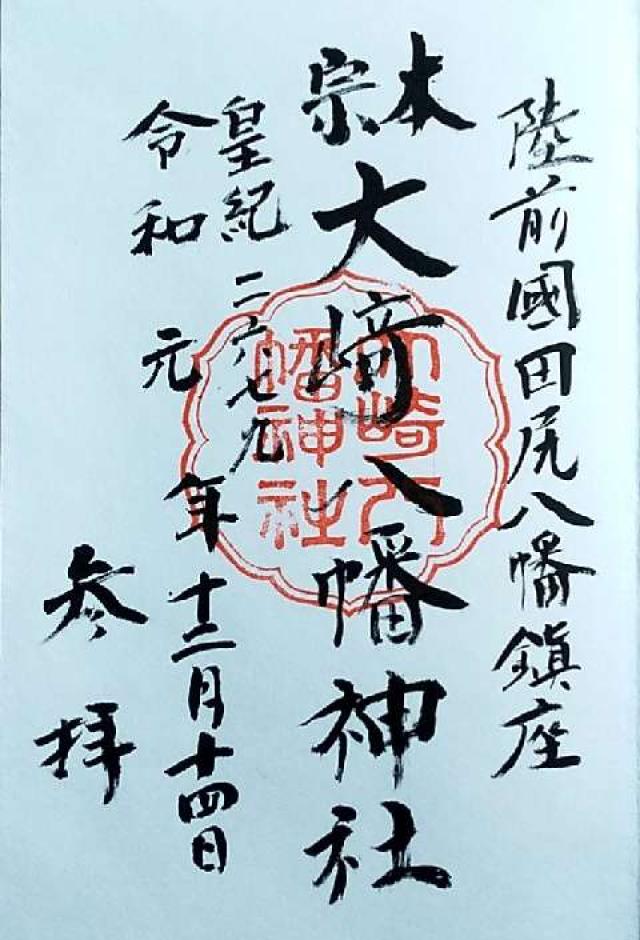 陸前國田尻八幡鎮座
本宗
大崎八幡神社
大崎八幡神社
皇紀二六七九
令和元年十二月十四日
参拝